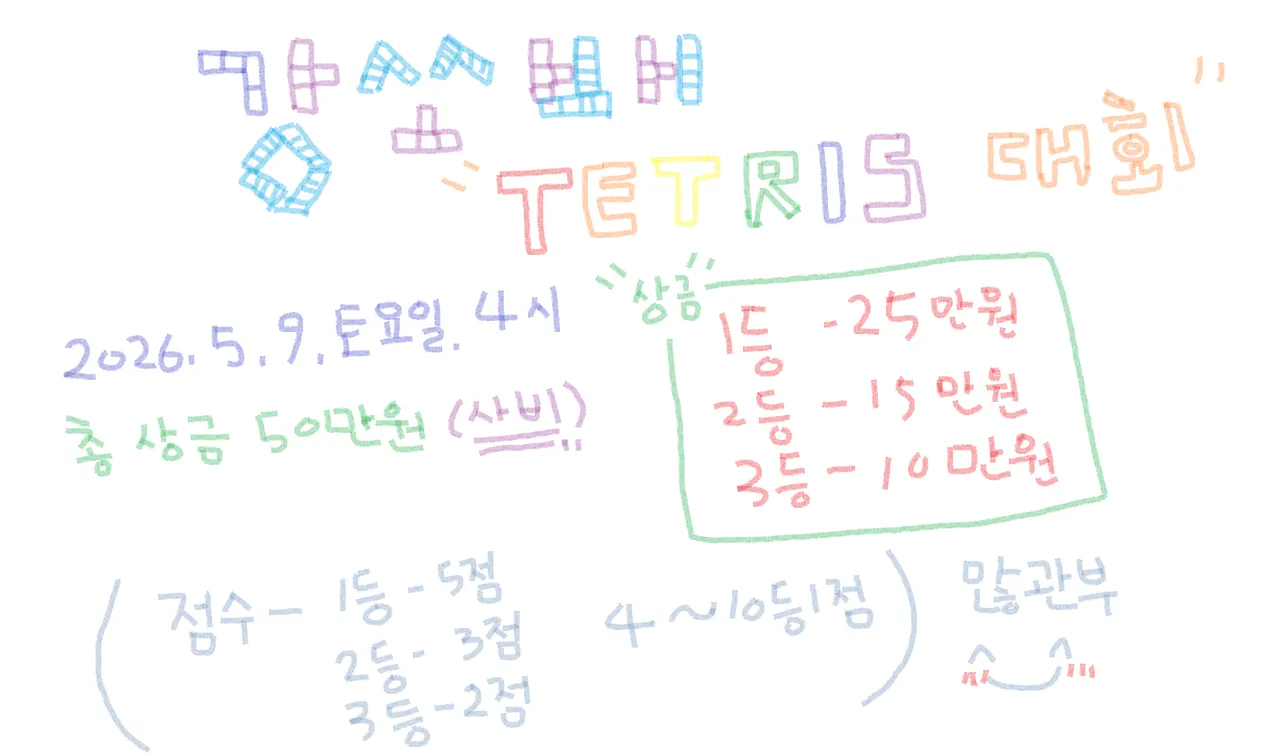 강쏘배
"TETRIS 대회"
2026. 5. 9. 토요일. 4시
총 상금 50만원 (사비)
"상금"
1등 - 25만원
2등 - 15만원
3등 - 10만원
(점수 - 1등 - 5점
2등 - 3점
3등 - 2점
4 ~ 10등 1점)
많관부